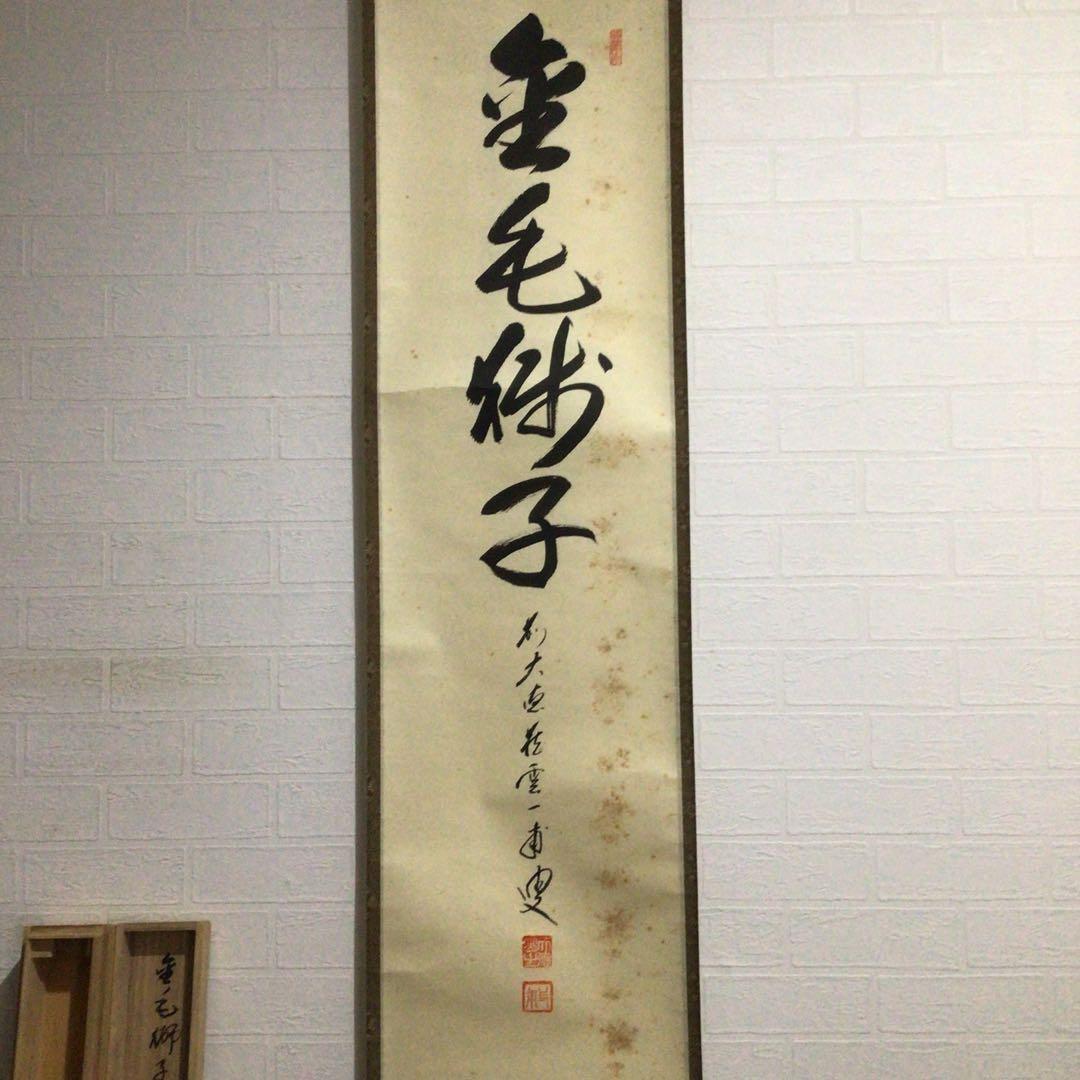 金毛獅子
前大徳藞雲一甫叟
金毛獅子